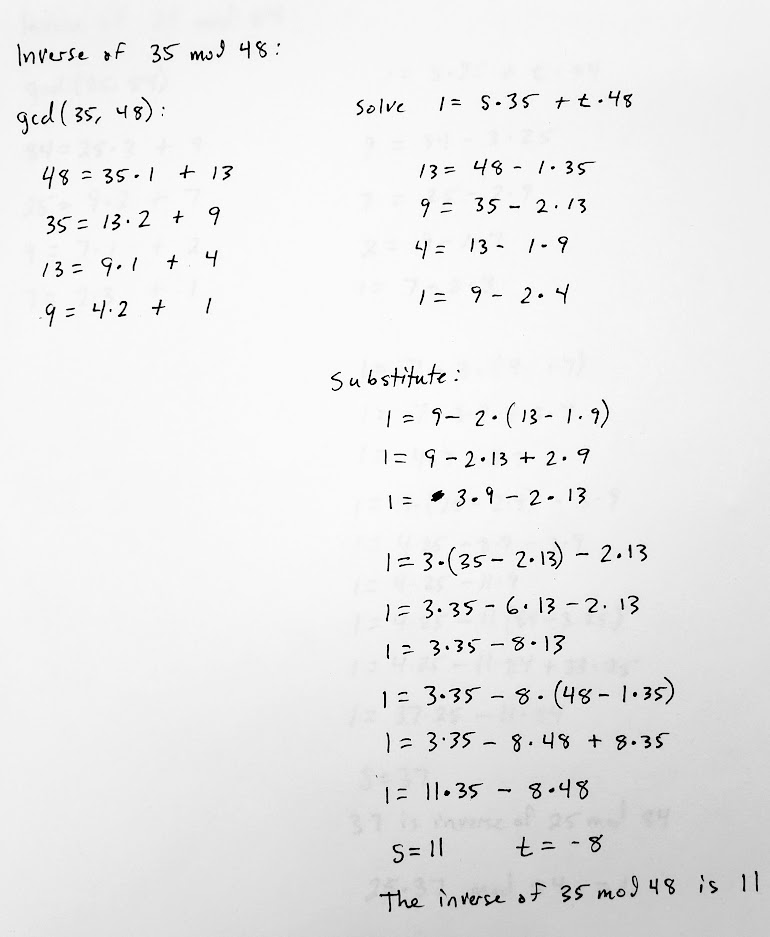 Inverse of 35 mod 48:
gcd(35, 48):
48 = 35·1 + 13
35 = 13·2 + 9
13 = 9·1 + 4
9 = 4·2 + 1
Solve 1 = s·35 + t·48
13 = 48 - 1·35
9 = 35 - 2·13
4 = 13 - 1·9
1 = 9 - 2·4
Substitute:
1 = 9 - 2·(13 - 1·9)
1 = 9 - 2·13 + 2·9
1 = 3·9 - 2·13
1 = 3·(35 - 2·13) - 2·13
1 = 3·35 - 6·13 - 2·13
1 = 3·35 - 8·13
1 = 3·35 - 8·(48 - 1·35)
1 = 3·35 - 8·48 + 8·35
1 = 11·35 - 8·48
s = 11 t = -8
The inverse of 35 mod 48 is 11